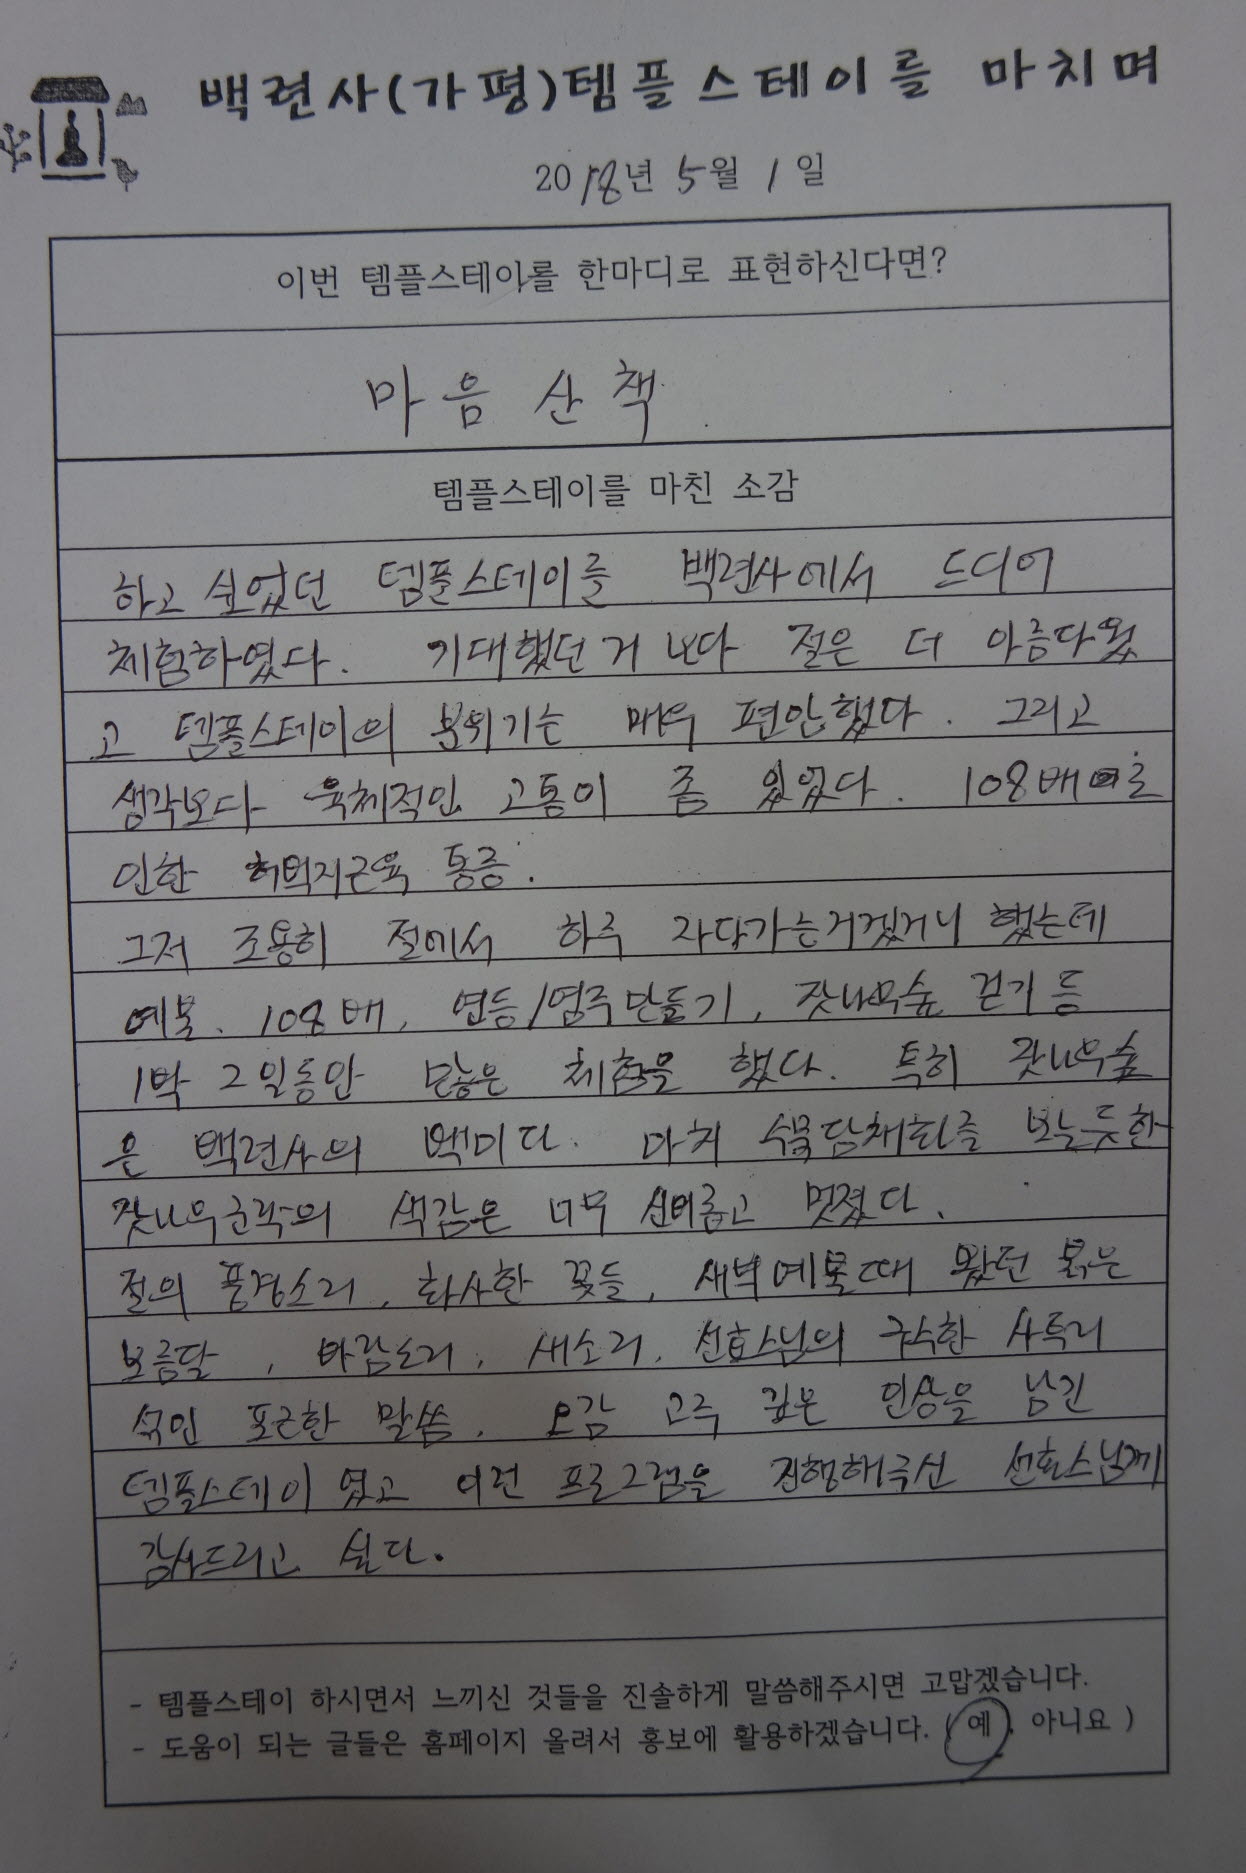 백련사(가평)템플스테이를 마치며
2018년 5월 1일
이번 템플스테이를 한마디로 표현하신다면?
마음 산책
템플스테이를 마친 소감
하고 싶었던 템플스테이를 백련사에서 드디어
체험하였다. 기대했던거 보다 절은 더 아름다웠
고 템플스테이의 분위기는 매우 편안했다. 그리고
생각보다 육체적인 고통이 좀 있었다. 108배로
인한 허벅지근육 통증.
그저 조용히 절에서 하루 자다가는거겠거니 했는데
예불, 108배, 연등/염주만들기, 잣나무숲 걷기 등
1박 2일동안 많은 체험을 했다. 특히 잣나무숲
은 백련사의 백미다. 마치 수묵담채화를 보는듯한
잣나무군락의 색감은 너무 신비롭고 멋졌다.
절의 풍경소리, 화사한 꽃들, 새벽예불때 봤던 붉은
보름달, 바람소리, 새소리, 선효스님의 구수한 사투리
섞인 푸근한 말씀, 오감 고루 깊은 인상을 남긴
템플스테이 였고 이런 프로그램을 진행해주신 선효스님께
감사드리고 싶다.
- 템플스테이 하시면서 느끼신 것들을 진솔하게 말씀해주시면 고맙겠습니다.
- 도움이 되는 글들은 홈페이지 올려서 홍보에 활용하겠습니다. ( 예, 아니요 )